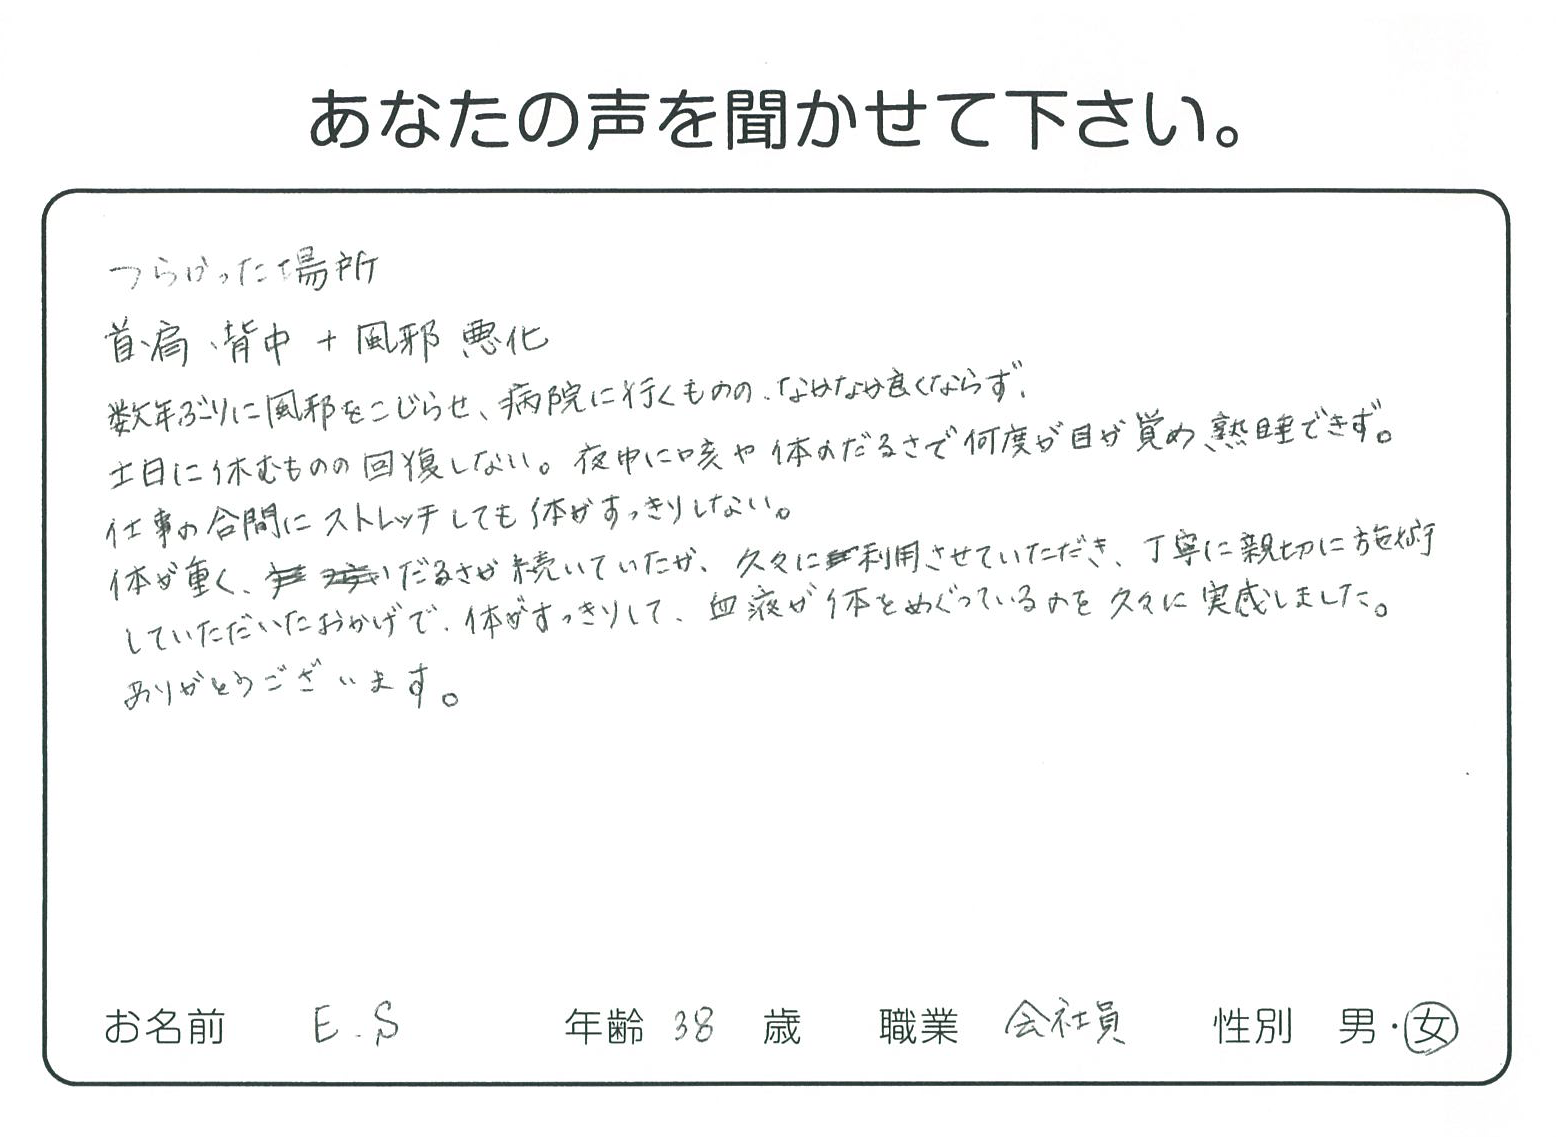 あなたの声を聞かせて下さい。
つらかった場所
首、肩、背中 + 風邪 悪化
数年ぶりに風邪をこじらせ、病院に行くものの、なかなか良くならず、
土日に休むものの回復しない。夜中に咳や体のだるさで何度が目が覚め、熟睡できず。
仕事の合間にストレッチしても体がすっきりしない。
体が重く、だるさが続いていたが、久々に利用させていただき、丁寧に親切に施術
していただいたおかげで、体がすっきりして、血液が体をめぐっているのを久々に実感しました。
ありがとうございます。
お名前 E.S 年齢 38 歳 職業 会社員 性別 男・女